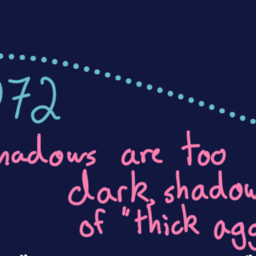 972
hadows are too
dark, shadow
of "thick agg